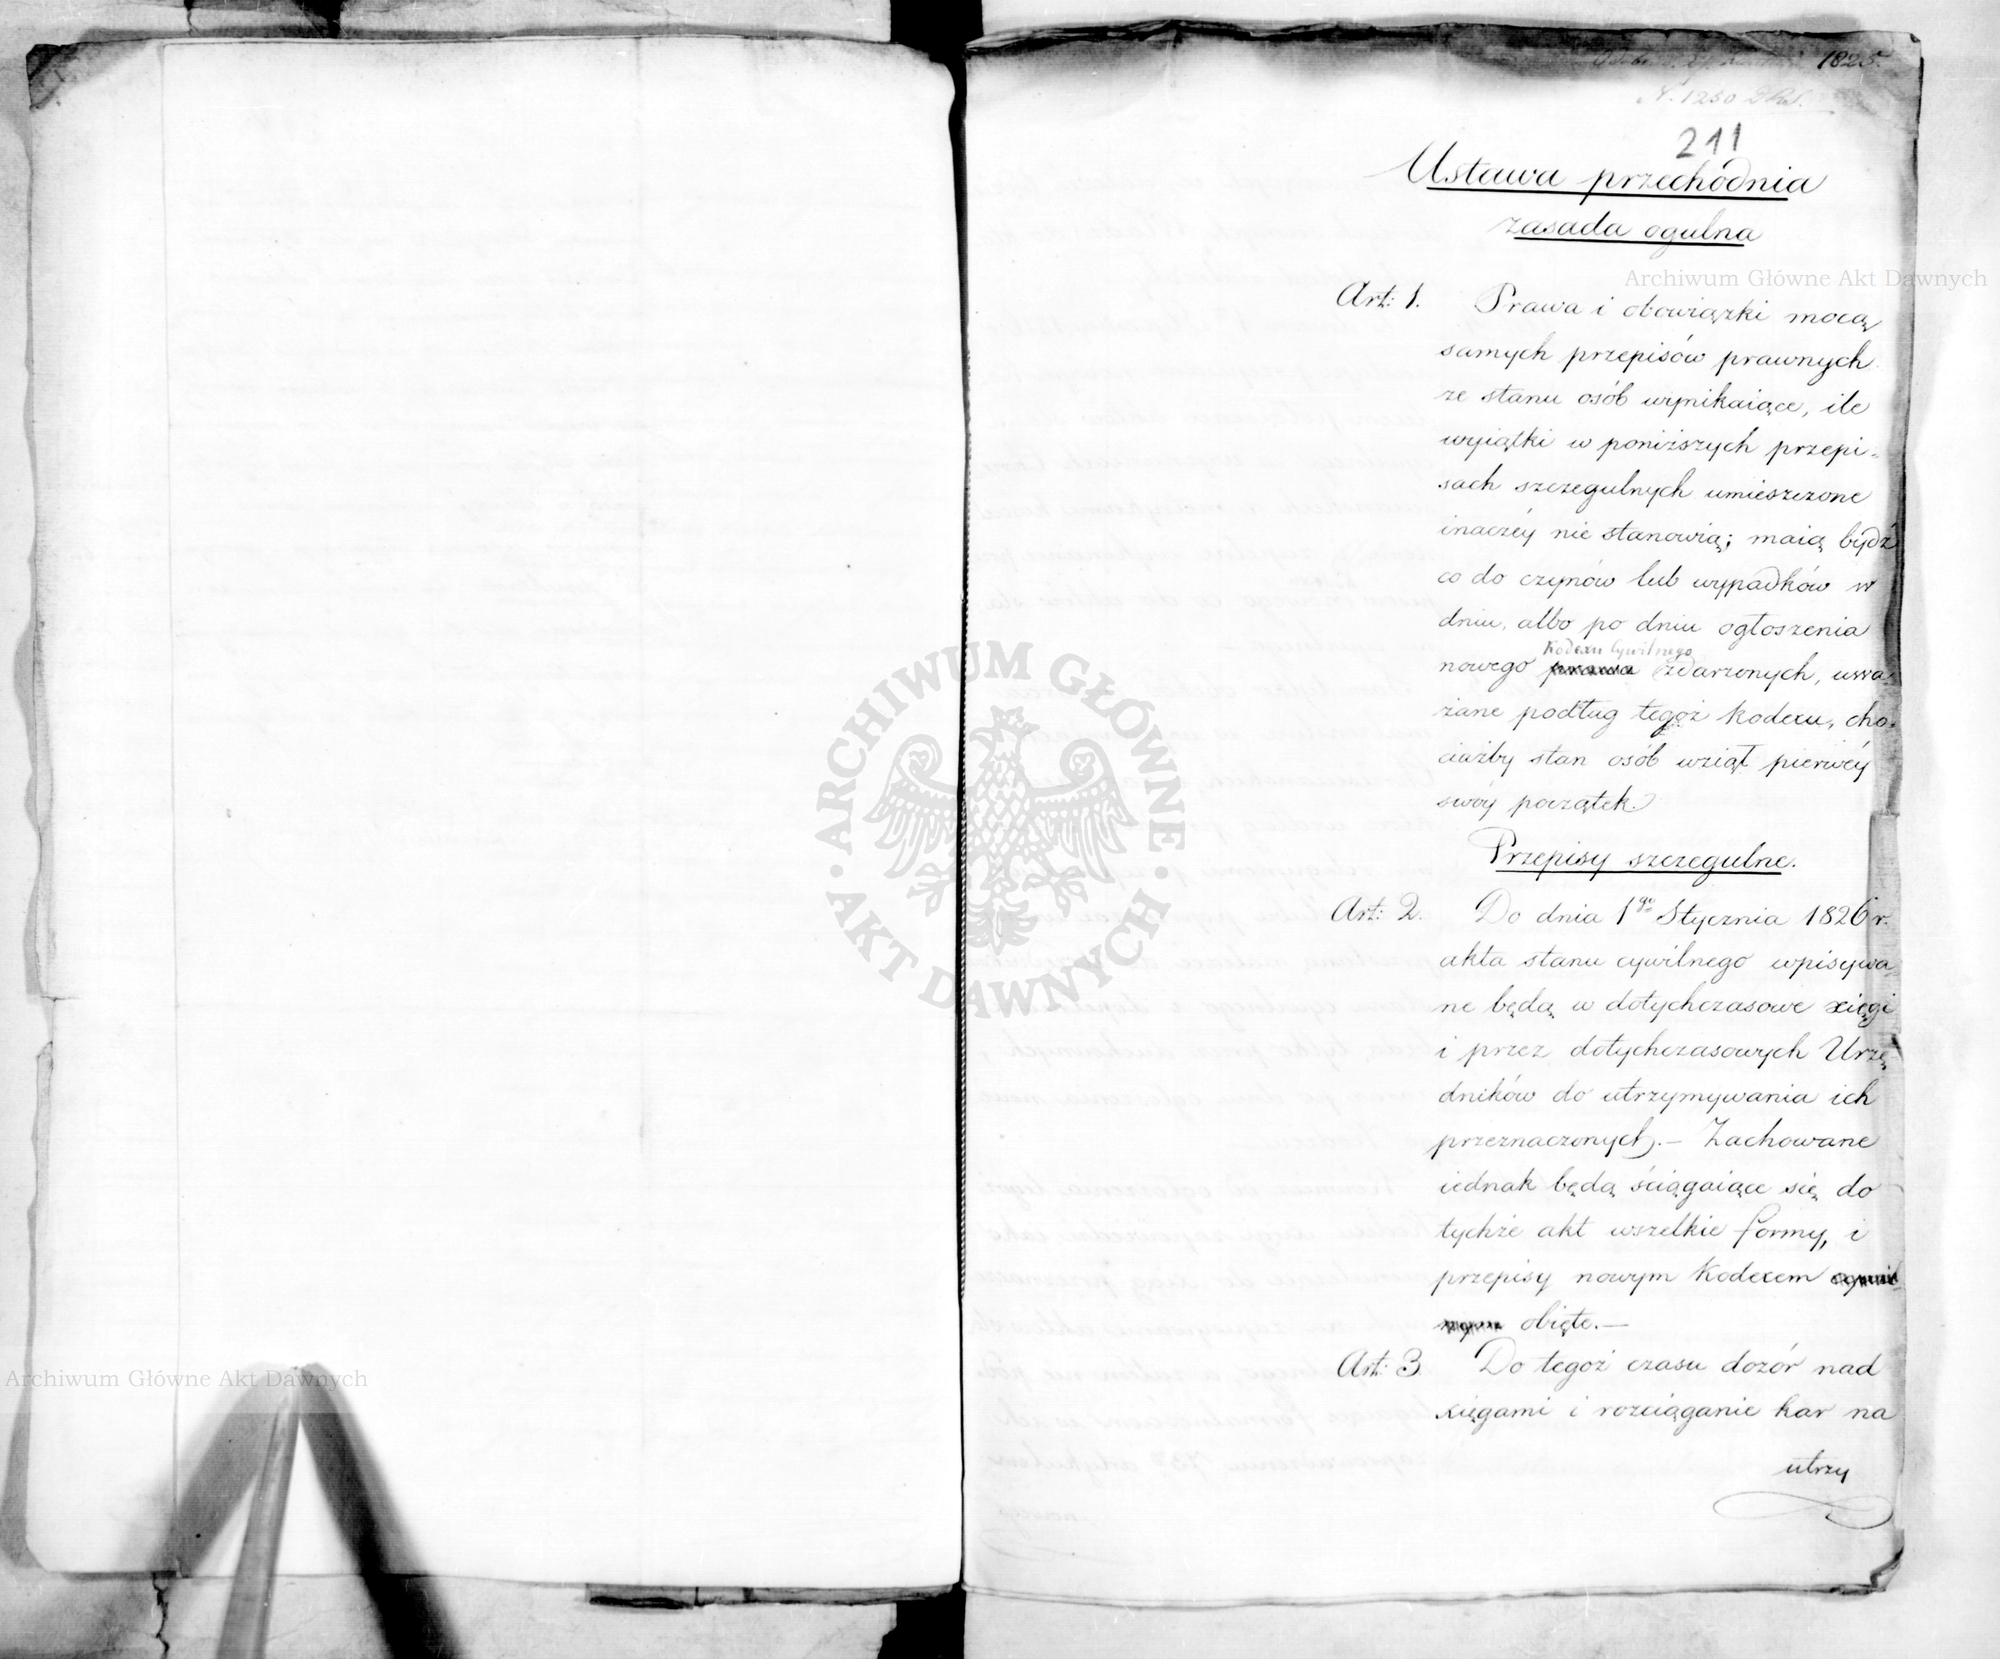 1825.
N. 1250
211
Ustawa przechodnia
zasada ogulna
Art: 1. Prawa i obowiązki mocą
samych przepisów prawnych
ze stanu osób wynikaiące, ile
wyiątki w poniższych przepi-
sach szczegulnych umieszczone
inaczéy nie stanowią; maią bydź
co do czynów lub wypadków w
dniu, albo po dniu ogłoszenia
Kodexu Cywilnego
nowego prawa zdarzonych, uwa-
żane podług tegoż Kodexu, cho-
ciażby stan osób wziął pierwéy
swóy początek.
Przepisy szczegulne.
Art: 2. Do dnia 1go Stycznia 1826 r.
akta stanu cywilnego wpisywa-
ne będą w dotychczasowe xięgi
i przez dotychczasowych Urzę-
dników do utrzymywania ich
przeznaczonych. — Zachowane
iednak będą ściągaiące się do
tychże akt wszelkie formy, i
przepisy nowym Kodexem cywil-
nym obięte. —
Art: 3 Do tegoż czasu dozór nad
xięgami i rozciąganie kar na
utrzy
Archiwum Główne Akt Dawnych
Archiwum Główne Akt Dawnych
ARCHIWUM GŁÓWNE
AKT DAWNYCH